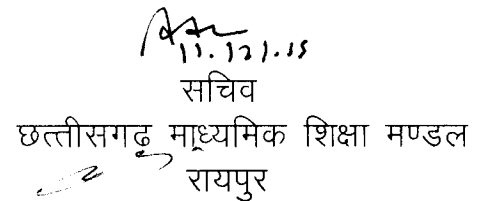 सचिव
छत्तीसगढ़ माध्यमिक शिक्षा मण्डल
रायपुर